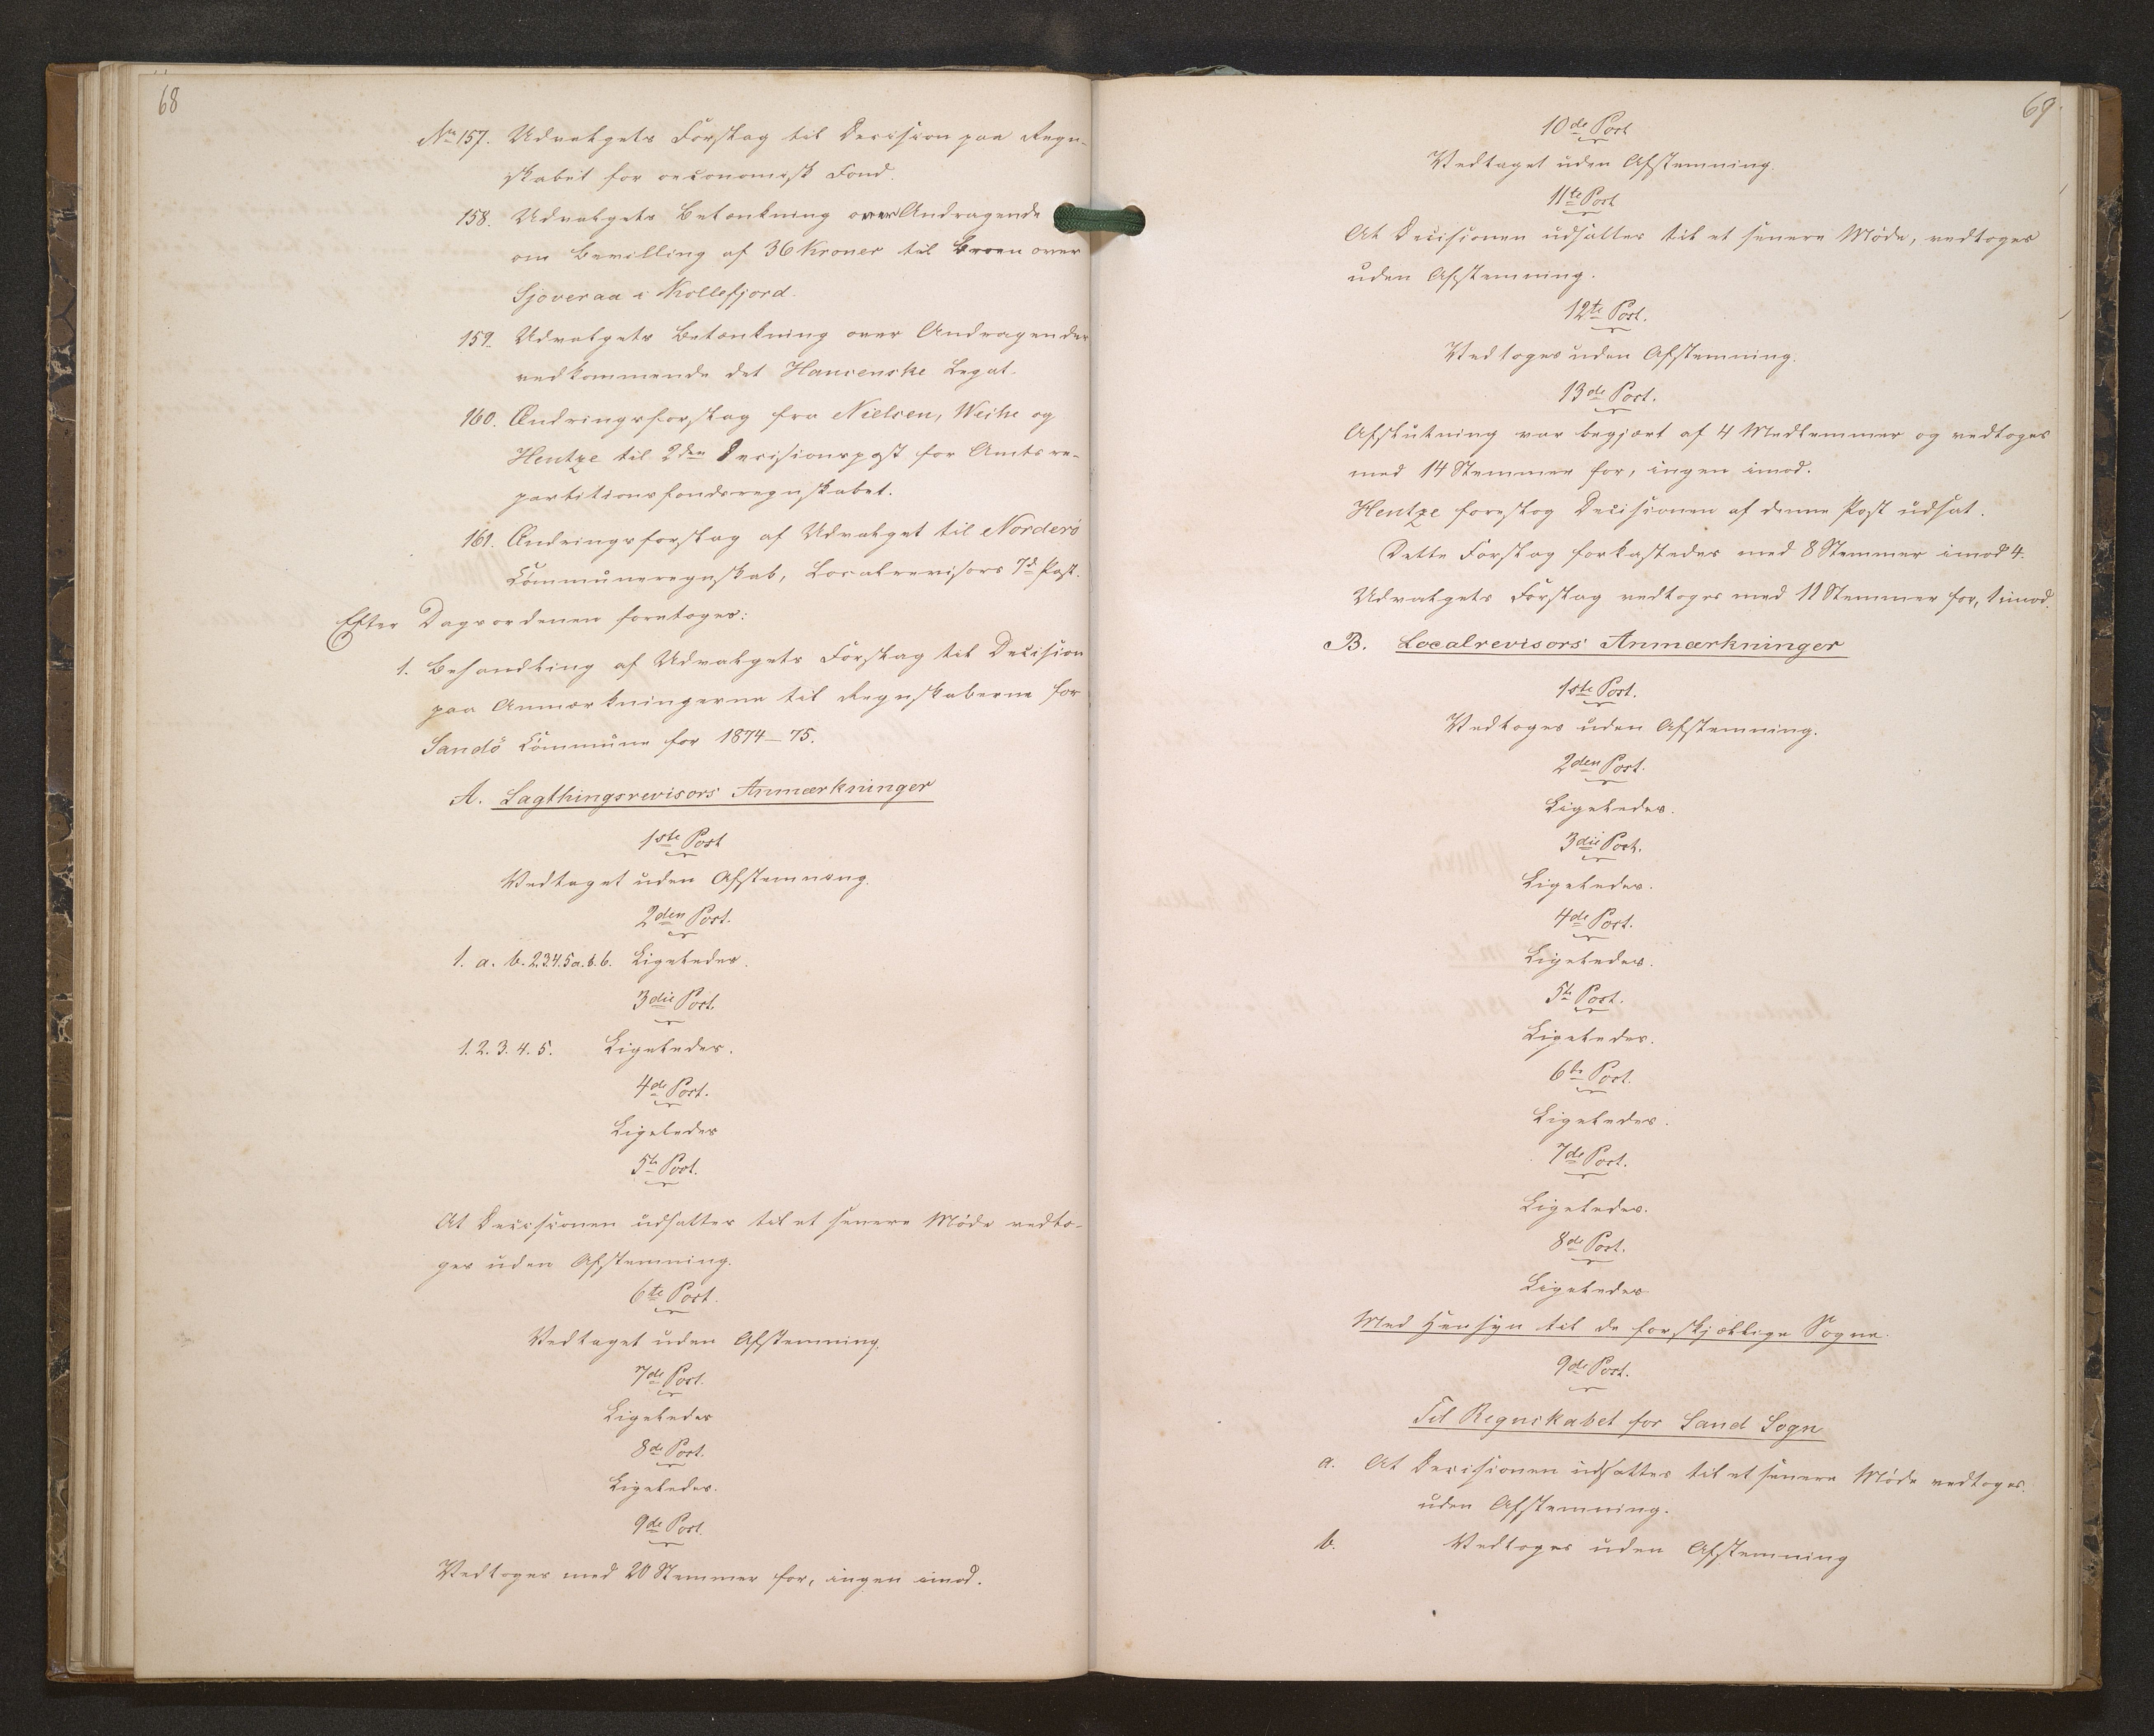 68
No 157. Udvalgets Forslag til Decision paa Regn-
skabet for oeconomisk Fond.
158. Udvalgets Betænkning over Andragende
om Bevilling af 36 Kroner til Broen over
Sjoveraa i Kollefjord.
159. Udvalgets Betænkning over Andragender
vedkommende det Hansenske Legat.
160. Ændringsforslag fra Nielsen, Weihe og
Hentze til 2den Decisionspost for Amtsre-
partitionsfondsregnskabet.
161. Ændringsforslag af Udvalget til Norderö
Communeregnskab, Localrevisors 7d Post.
Efter Dagsordenen foretoges:
1. Behandling af Udvalgets Forslag til Decision
paa Anmærkningerne til Regnskaberne for
Sandö Commune for 1874-75.
A. Lagthingsrevisors Anmærkninger
1ste Post
Vedtaget uden Afstemning.
2den Post.
1. a. b. 2.3.4.5a.b.6. Ligeledes.
3die Post.
1. 2. 3. 4. 5. Ligeledes.
4de Post.
Ligeledes
5te Post.
At Decisionen udsattes til et senere Møde vedto-
ges uden Afstemning.
6te Post.
Vedtaget uden Afstemning.
7de Post.
Ligeledes
8de Post.
Ligeledes.
9de Post.
Vedtoges med 20 Stemmer for, ingen imod.
69.
10de Post
Vedtaget uden Afstemning.
11te Post
At Decisionen udsattes til et senere Møde, vedtoges
uden Afstemning.
12te Post.
Vedtoges uden Afstemning.
13de Post.
Afslutning var begjært af 4 Medlemmer og vedtoges
med 14 Stemmer for, ingen imod.
Hentze foreslog Decisionen af denne Post udsat.
Dette Forslag forkastedes med 8 Stemmer imod 4.
Udvalgets Forslag vedtoges med 11 Stemmer for, 1 imod.
B. Localrevisors Anmærkninger
1ste Post.
Vedtoges uden Afstemning.
2den Post.
Ligeledes.
3die Post.
Ligeledes.
4de Post.
Ligeledes.
5te Post.
Ligeledes.
6te Post.
Ligeledes.
7de Post.
Ligeledes.
8de Post.
Ligeledes
Med Hensyn til de forskjællige Sogne.
9de Post.
Til Regnskabet for Sand Sogn
a. At Decisionen udsattes til et senere Møde vedtoges
uden Afstemning.
b. Vedtoges uden Afstemning